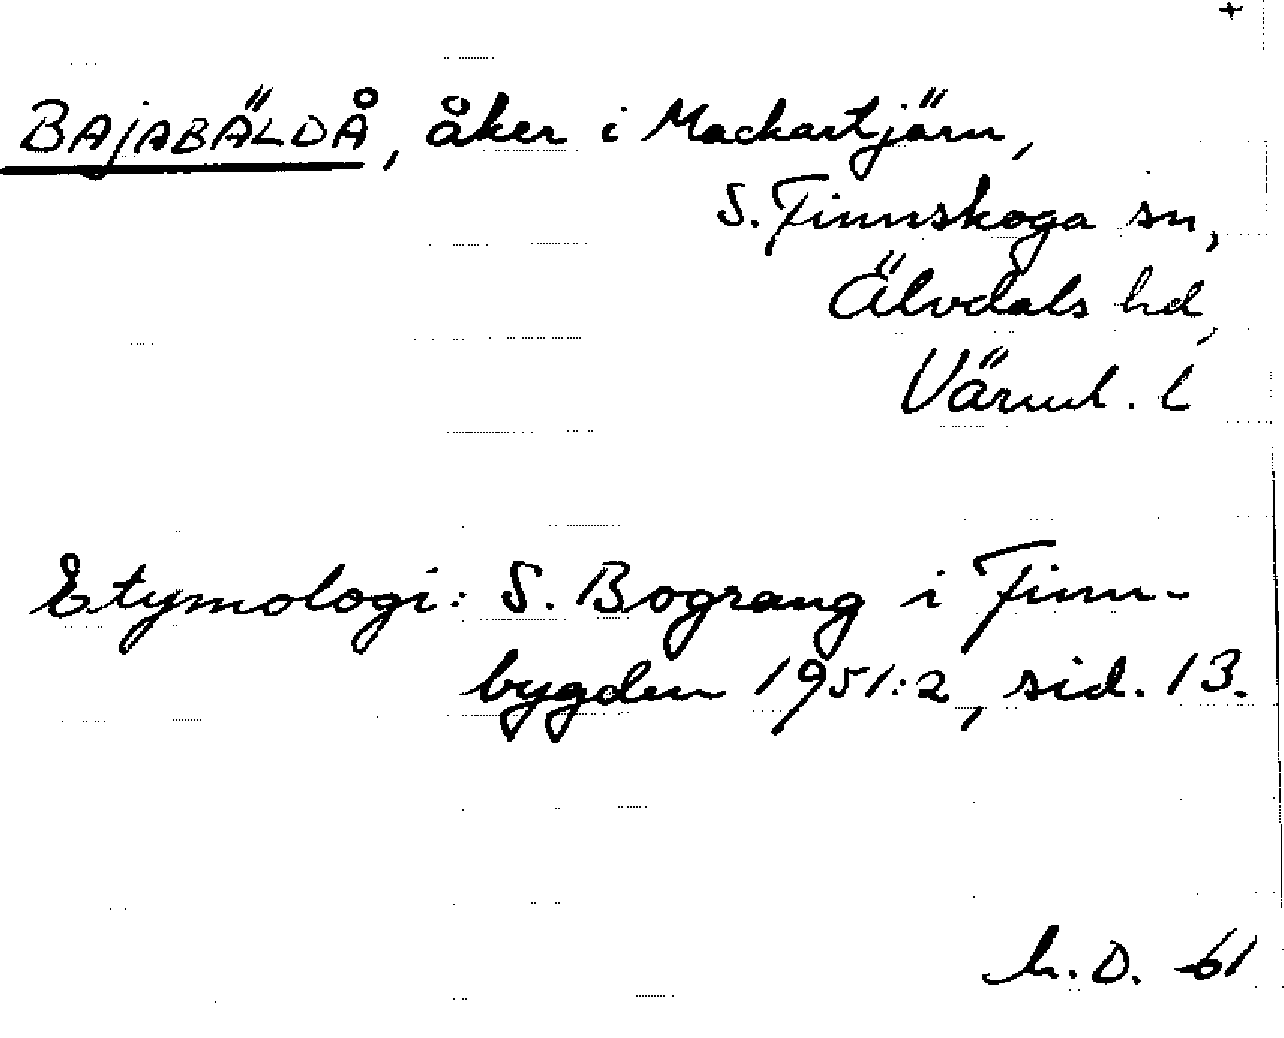 +
BAJABÄLDÅ, åker i Mackartjärn,
S. Finnskoga sn,
Älvdals hd,
Värml. l
Etymologi: S. Bograng i Finn-
bygden 1951:2, sid. 13.
h. D. -61